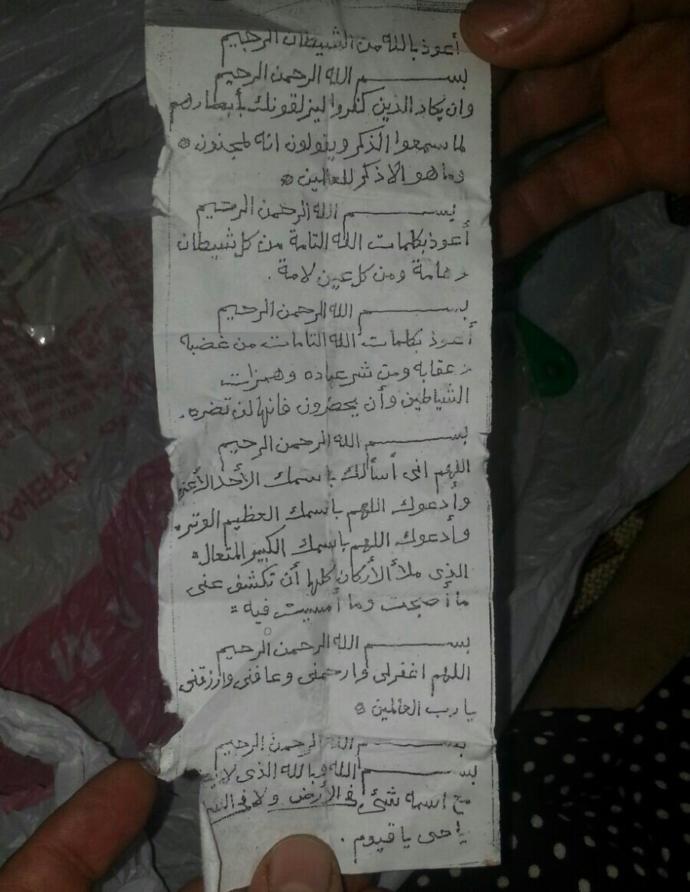 أعوذ بالله من الشيطان الرجيم
بســـــم الله الرحمن الرحيم
وان يكاد الذين كفروا ليزلقونك بأبصارهم
لما سمعوا الذكر ويقولون انه لمجنون
وما هو الا ذكر للعالمين
بســـــم الله الرحمن الرحيم
أعوذ بكلمات الله التامة من كل شيطان
وهامة ومن كل عين لامة .
بســـــم الله الرحمن الرحيم
أعوذ بكلمات الله التامات من غضبه
وعقابه ومن شر عباده وهمزات
الشياطين وأن يحضرون فانها لن تضره .
بســـــم الله الرحمن الرحيم
اللهم انى أسألك باسمك الأحد الأعز
وأدعوك اللهم باسمك العظيم الوتر
وأدعوك اللهم باسمك الكبير المتعال
الذى ملأ الأركان كلها أن تكشف عنى
ما أصبحت وما أمسيت فيه
بســـــم الله الرحمن الرحيم
اللهم اغفرلى وارحمنى وعافنى وارزقنى
يا رب العالمين
بســـــم الله الرحمن الرحيم
بســـــم الله وبالله الذى لا
مع اسمه شئ فى الأرض ولا فى
يا حى يا قيوم .